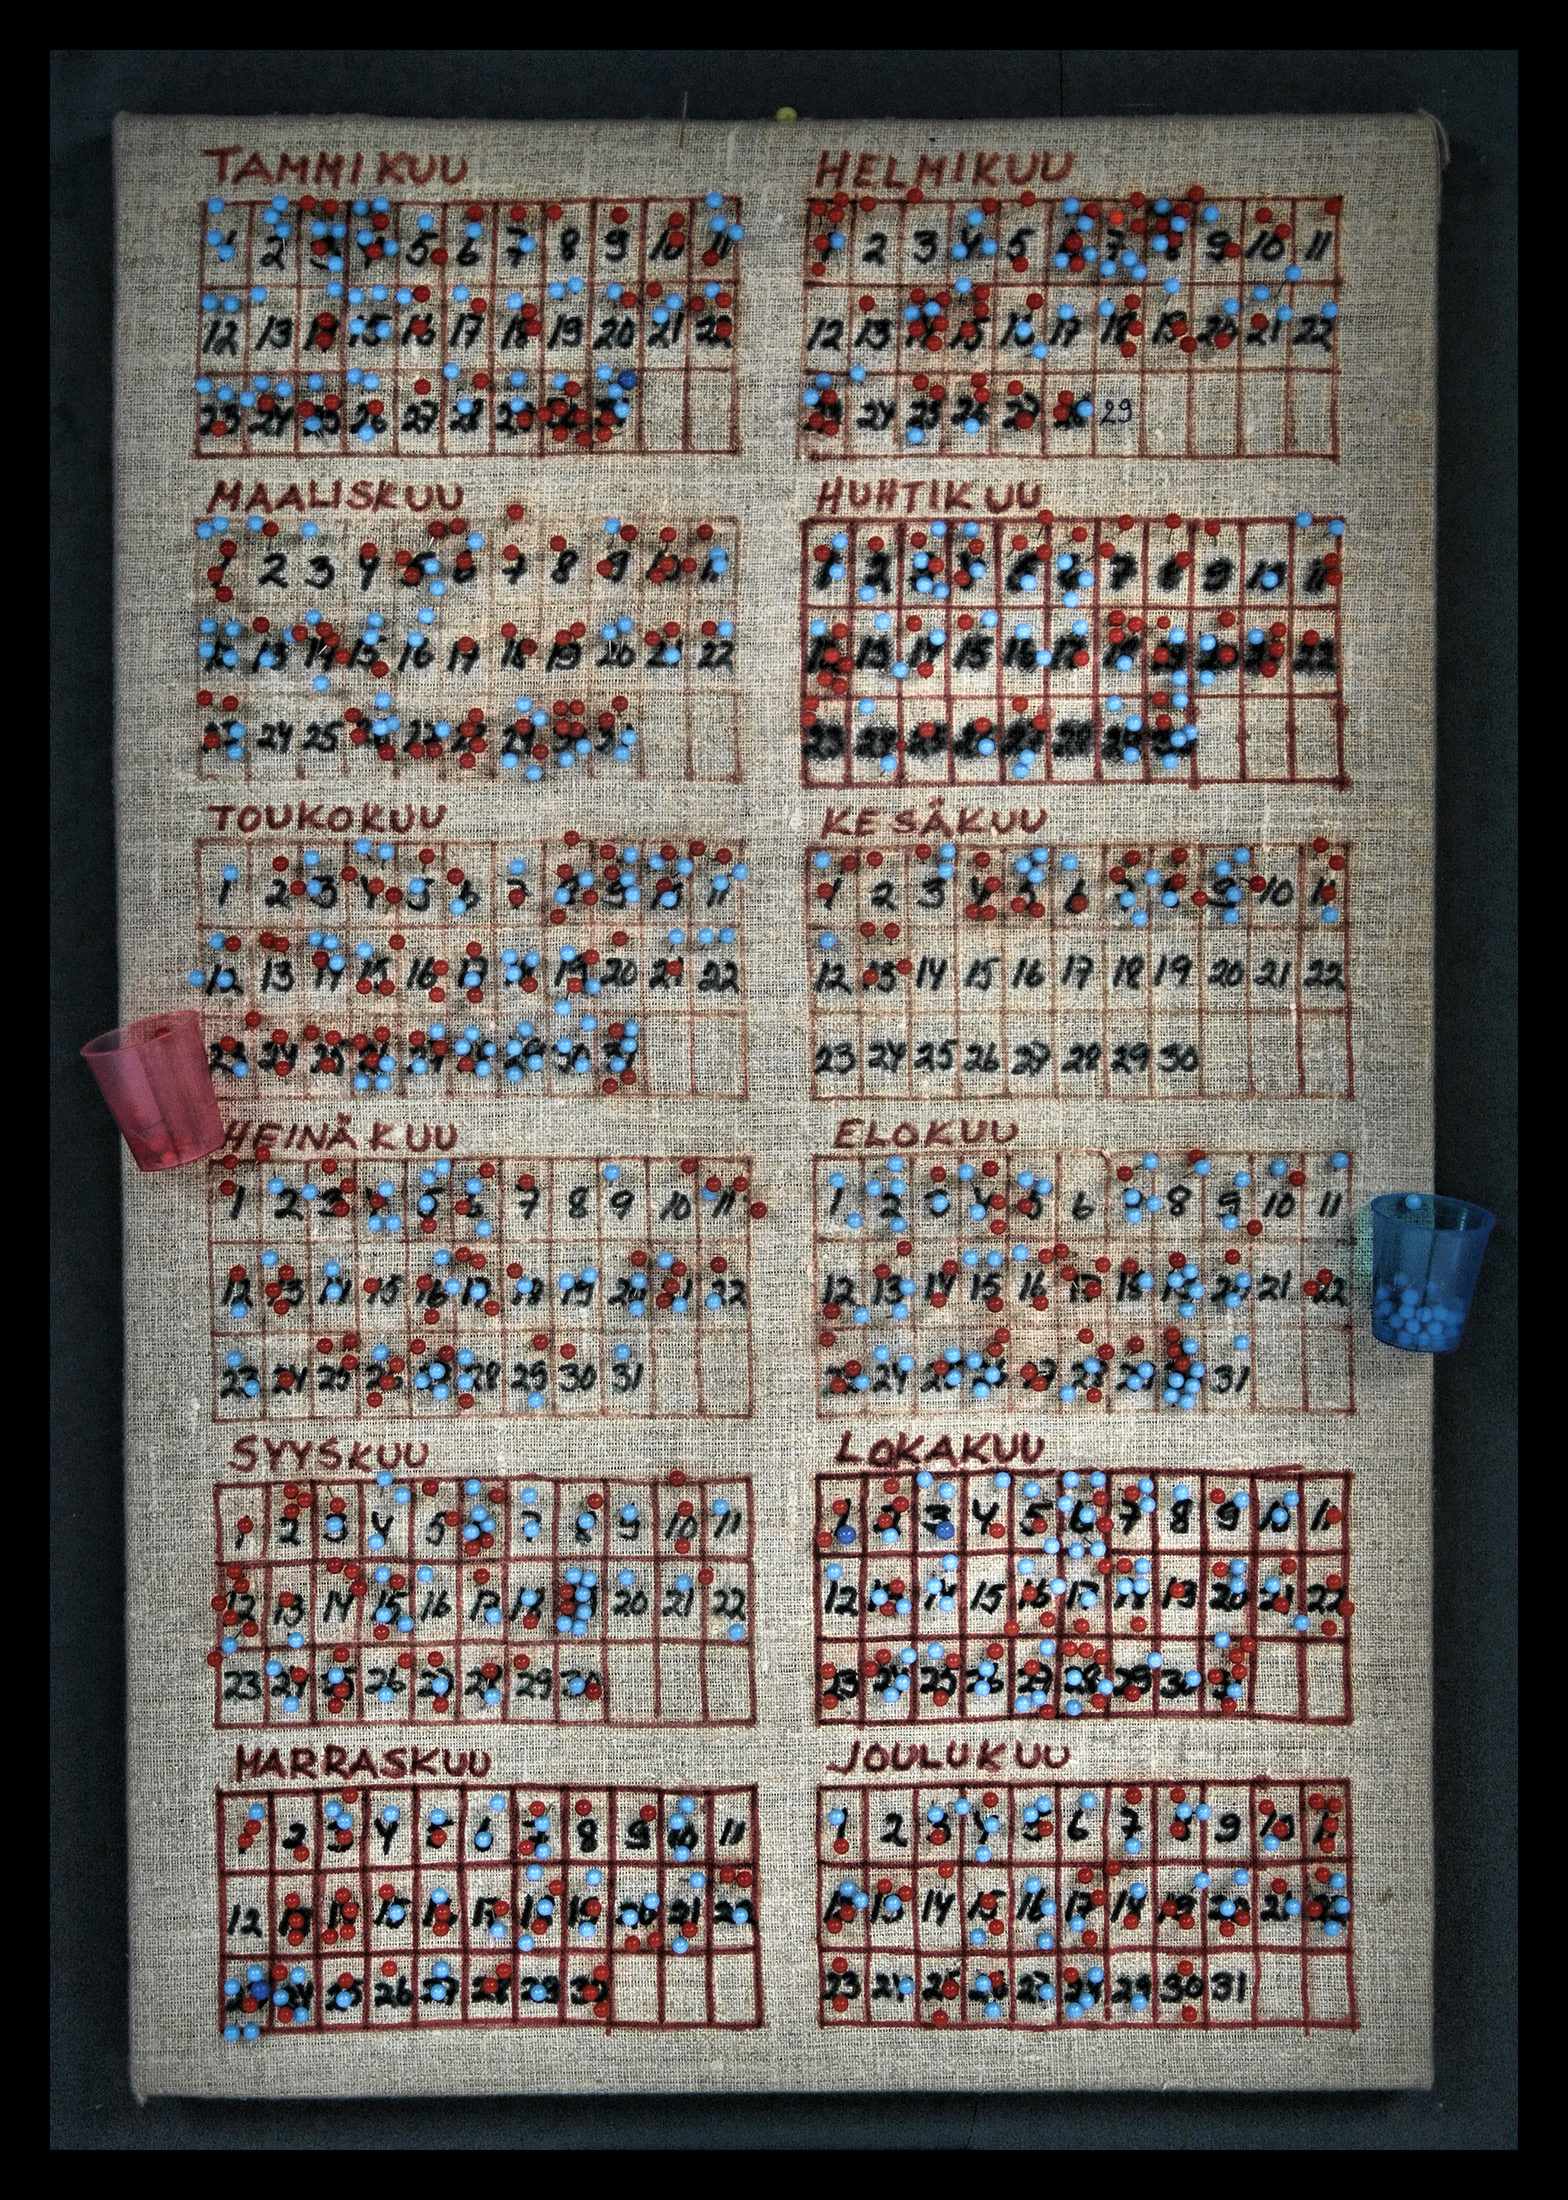 TAMMIKUU
1 2 3 4 5 6 7 8 9 10 11
12 13 14 15 16 17 18 19 20 21 22
23 24 25 26 27 28 29 30 31
HELMIKUU
1 2 3 4 5 6 7 8 9 10 11
12 13 14 15 16 17 18 19 20 21 22
23 24 25 26 27 28 29
MAALISKUU
1 2 3 4 5 6 7 8 9 10 11
12 13 14 15 16 17 18 19 20 21 22
23 24 25 26 27 28 29 30 31
HUHTIKUU
1 2 3 4 5 6 7 8 9 10 11
12 13 14 15 16 17 18 19 20 21 22
23 24 25 26 27 28 29 30
TOUKOKUU
1 2 3 4 5 6 7 8 9 10 11
12 13 14 15 16 17 18 19 20 21 22
23 24 25 26 27 28 29 30 31
KESÄKUU
1 2 3 4 5 6 7 8 9 10 11
12 13 14 15 16 17 18 19 20 21 22
23 24 25 26 27 28 29 30
HEINÄKUU
1 2 3 4 5 6 7 8 9 10 11
12 13 14 15 16 17 18 19 20 21 22
23 24 25 26 27 28 29 30 31
ELOKUU
1 2 3 4 5 6 7 8 9 10 11
12 13 14 15 16 17 18 19 20 21 22
23 24 25 26 27 28 29 30 31
SYYSKUU
1 2 3 4 5 6 7 8 9 10 11
12 13 14 15 16 17 18 19 20 21 22
23 24 25 26 27 28 29 30
LOKAKUU
1 2 3 4 5 6 7 8 9 10 11
12 13 14 15 16 17 18 19 20 21 22
23 24 25 26 27 28 29 30 31
MARRASKUU
1 2 3 4 5 6 7 8 9 10 11
12 13 14 15 16 17 18 19 20 21 22
23 24 25 26 27 28 29 30
JOULUKUU
1 2 3 4 5 6 7 8 9 10 11
12 13 14 15 16 17 18 19 20 21 22
23 24 25 26 27 28 29 30 31